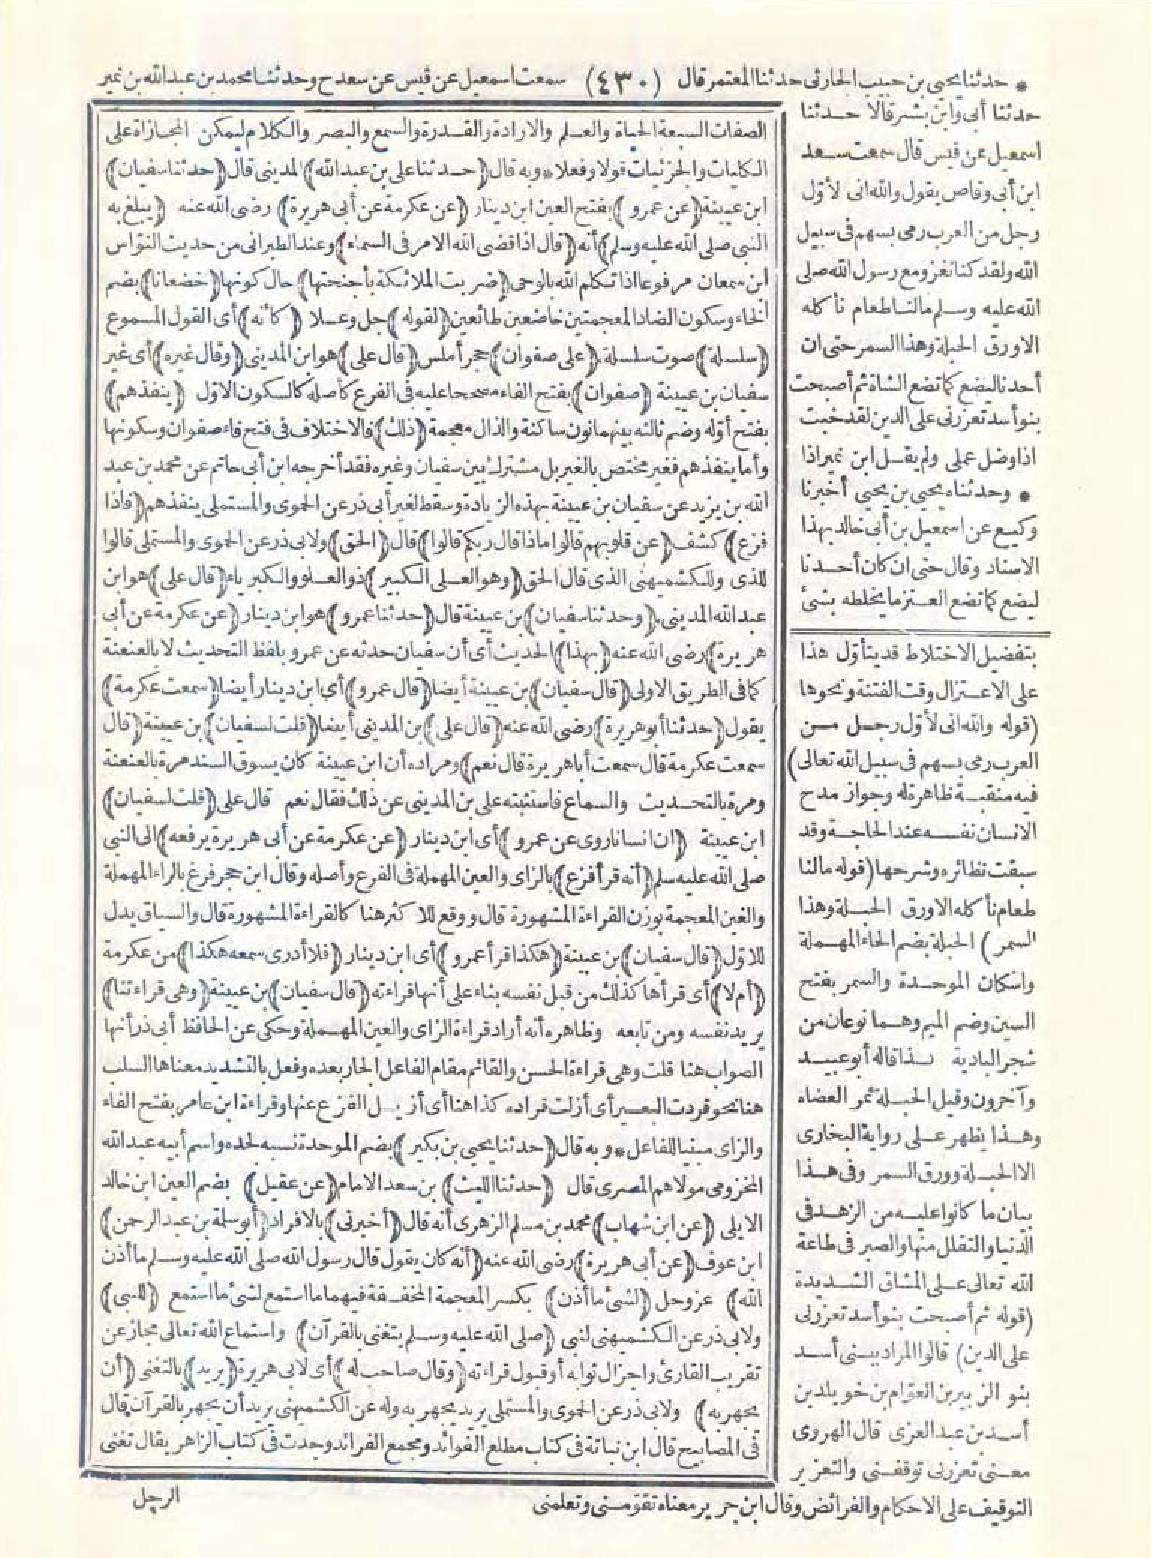 * حدثنا يحيى بن حبيب الحارثى حدثنا المعتمر قال (٤٣٠) سمعت اسمعيل عن قيس عن سعد ح وحدثنا محمد بن عبد الله بن نمير
حدثنا أبى وابن بشر قالا حدثنا
اسمعيل عن قيس قال سمعت سعد
ابن أبى وقاص يقول والله انى لأول
رجل من العرب رمى بسهم فى سبيل
الله ولقد كنا نغزو مع رسول الله صلى
الله عليه وسلم مالنا طعام نأكله
الاورق الحبلة وهذا السمر حتى ان
أحدنا ليضع كما تضع الشاة ثم أصبحت
بنو أسد تعزرنى على الدين لقد خبت
اذا وضل عملى ولم يقل ابن نمير اذا
* وحدثناه يحيى بن يحيى أخبرنا
وكيع عن اسمعيل بن أبى خالد بهذا
الاسناد وقال حتى ان كان أحدنا
ليضع كما تضع العنز ما يخلطه بشئ
بتفضيل الاختلاط قد يتأول هذا
على الاعتزال وقت الفتنة ونحوها
(قوله والله انى لأول رجل من
العرب رمى بسهم فى سبيل الله تعالى)
فيه منقبة ظاهرة له وجواز مدح
الانسان نفسه عند الحاجة وقد
سبقت نظائره وشرحها (قوله مالنا
طعام نأكله الاورق الحبلة وهذا
السمر) الحبلة بضم الحاء المهملة
واسكان الموحدة والسمر بفتح
السين وضم الميم وهما نوعان من
شجر البادية كذا قاله أبو عبيد
وآخرون وقيل الحبلة ثمر العضاه
وهذا يظهر على رواية البخارى
الا الحبلة وورق السمر وفى هذا
بيان ما كانوا عليه من الزهد فى
الدنيا والتقلل منها والصبر فى طاعة
الله تعالى على المشاق الشديدة
(قوله ثم أصبحت بنو أسد تعزرنى
على الدين) قالوا المراد ببنى أسد
بنو الزبير بن العوام بن خويلد بن
أسد بن عبد العزى قال الهروى
معنى تعزرنى توقفنى والتعزير
التوقيف على الاحكام والفرائض وقال ابن جرير معناه تقومنى وتعلمنى
الصفات السبعة الحياة والعلم والارادة والقدرة والسمع والبصر والكلام ليمكن المجازاة على
الكليات والجزئيات قولا وفعلا * وبه قال (حدثنا على بن عبد الله) المدينى قال (حدثنا سفيان)
ابن عيينة (عن عمرو) بفتح العين ابن دينار (عن عكرمة عن أبى هريرة) رضى الله عنه (يبلغ به
النبى صلى الله عليه وسلم) أنه (قال اذا قضى الله الامر فى السماء) وعند الطبرانى من حديث النواس
ابن سمعان مرفوعا اذا تكلم الله بالوحى (ضربت الملائكة بأجنحتها) حال كونها (خضعانا) بضم
الخاء وسكون الضاد المعجمتين خاضعين طائعين (لقوله) جل وعلا (كأنه) أى القول المسموع
(سلسلة) صوت سلسلة (على صفوان) حجر أملس (قال على) هو ابن المدينى (وقال غيره) أى غير
سفيان بن عيينة (صفوان) بفتح الفاء مصححا عليه فى الفرع كأصله كالسكون الاول (ينفذهم)
بفتح أوله وضم ثالثه بينهما نون ساكنة والذال معجمة (ذلك) فالاختلاف فى فتح فاء صفوان وسكونها
وأما ينفذهم فغير مختص بالغير بل مشترك بين سفيان وغيره فقد أخرجه ابن أبى حاتم عن محمد بن عبد
الله بن يزيد عن سفيان بن عيينة بهذه الزيادة وسقط لغير أبى ذر عن الحموى والمستملى ينفذهم (فاذا
فزع) كشف (عن قلوبهم قالوا ماذا قال ربكم قالوا) قال (الحق) ولابى ذر عن الحموى والمستملى قالوا
للذى وللكشميهنى الذى قال الحق (وهو العلى الكبير) ذو العلو والكبرياء (قال على) هو ابن
عبد الله المدينى (وحدثنا سفيان) بن عيينة قال (حدثنا عمرو) هو ابن دينار (عن عكرمة عن أبى
هريرة) رضى الله عنه (بهذا) الحديث أى أن سفيان حدثه عن عمرو بلفظ التحديث لا بالعنعنة
كما فى الطريق الاولى (قال سفيان) بن عيينة أيضا (قال عمرو) أى ابن دينار أيضا (سمعت عكرمة)
يقول (حدثنا أبو هريرة) رضى الله عنه (قال على) بن المدينى أيضا (قلت لسفيان) بن عيينة (قال
سمعت عكرمة قال سمعت أبا هريرة قال نعم) ومراده أن ابن عيينة كان يسوق السند مرة بالعنعنة
ومرة بالتحديث والسماع فاستثبته على بن المدينى عن ذلك فقال نعم قال على (قلت لسفيان)
ابن عيينة (ان انسانا روى عن عمرو) أى ابن دينار (عن عكرمة عن أبى هريرة يرفعه) الى النبى
صلى الله عليه وسلم (أنه قرأ فزع) بالزاى والعين المهملة فى الفرع وأصله وقال ابن حجر فرغ بالراء المهملة
والغين المعجمة بوزن القراءة المشهورة قال ووقع للاكثر هنا كالقراءة المشهورة قال والسياق يدل
للاول (قال سفيان) بن عيينة (هكذا قرأ عمرو) أى ابن دينار (فلا أدرى سمعه هكذا) من عكرمة
(أم لا) أى قرأها كذلك من قبل نفسه بناء على أنها قراءته (قال سفيان) بن عيينة (وهى قراءتنا)
يريد نفسه ومن تابعه وظاهره أنه أراد قراءة الزاى والعين المهملة وحكى عن الحافظ أبى ذر أنها
الصواب هنا قلت وهى قراءة الحسن والقائم مقام الفاعل الجار بعده وفعل بالتشديد معناها السلب
هنا نحو قردت البعير أى أزلت قراده كذا هنا أى أزيل الفزع عنها وقراءة ابن عامر بفتح الفاء
والزاى مبنيا للفاعل * وبه قال (حدثنا يحيى بن بكير) بضم الموحدة نسبه لجده واسم أبيه عبد الله
المخزومى مولاهم المصرى قال (حدثنا الليث) بن سعد الامام (عن عقيل) بضم العين ابن خالد
الايلى (عن ابن شهاب) محمد بن مسلم الزهرى أنه قال (أخبرنى) بالافراد (أبو سلمة بن عبد الرحمن)
ابن عوف (عن أبى هريرة) رضى الله عنه (أنه كان يقول قال رسول الله صلى الله عليه وسلم ما أذن
الله) عز وجل (لشئ ما أذن) بكسر المعجمة المخففة فيهما ما استمع لشئ ما استمع (للنبى)
ولابى ذر عن الكشميهنى لنبى (صلى الله عليه وسلم يتغنى بالقرآن) واستماع الله تعالى مجاز عن
تقريب القارئ واجزال ثوابه أو قبول قراءته (وقال صاحب له) أى لابى هريرة (يريد) بالتغنى (أن
يجهر به) ولابى ذر عن الحموى والمستملى يريد يجهر به وله عن الكشميهنى يريد أن يجهر بالقرآن قال
فى المصابيح قال ابن نباتة فى كتاب مطلع الفوائد ومجمع الفرائد وجدت فى كتاب الزاهر يقال تغنى
الرجل